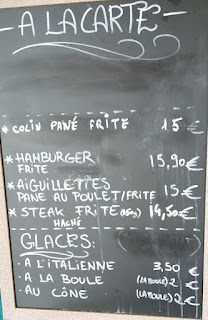 - A LA CARTE -
* COLIN PANÉ FRITE 15 €
* HAMBURGER 15,90€
FRITE
* AIGUILLETTES 15 €
PANE AU POULET/FRITE
* STEAK FRITE (150g) 14,50€
HACHÉ
GLACES:
- A L'ITALIENNE 3,50 €
- A LA BOULE (LA BOULE) 2 €
- AU CÔNE (LA BOULE) 2 €